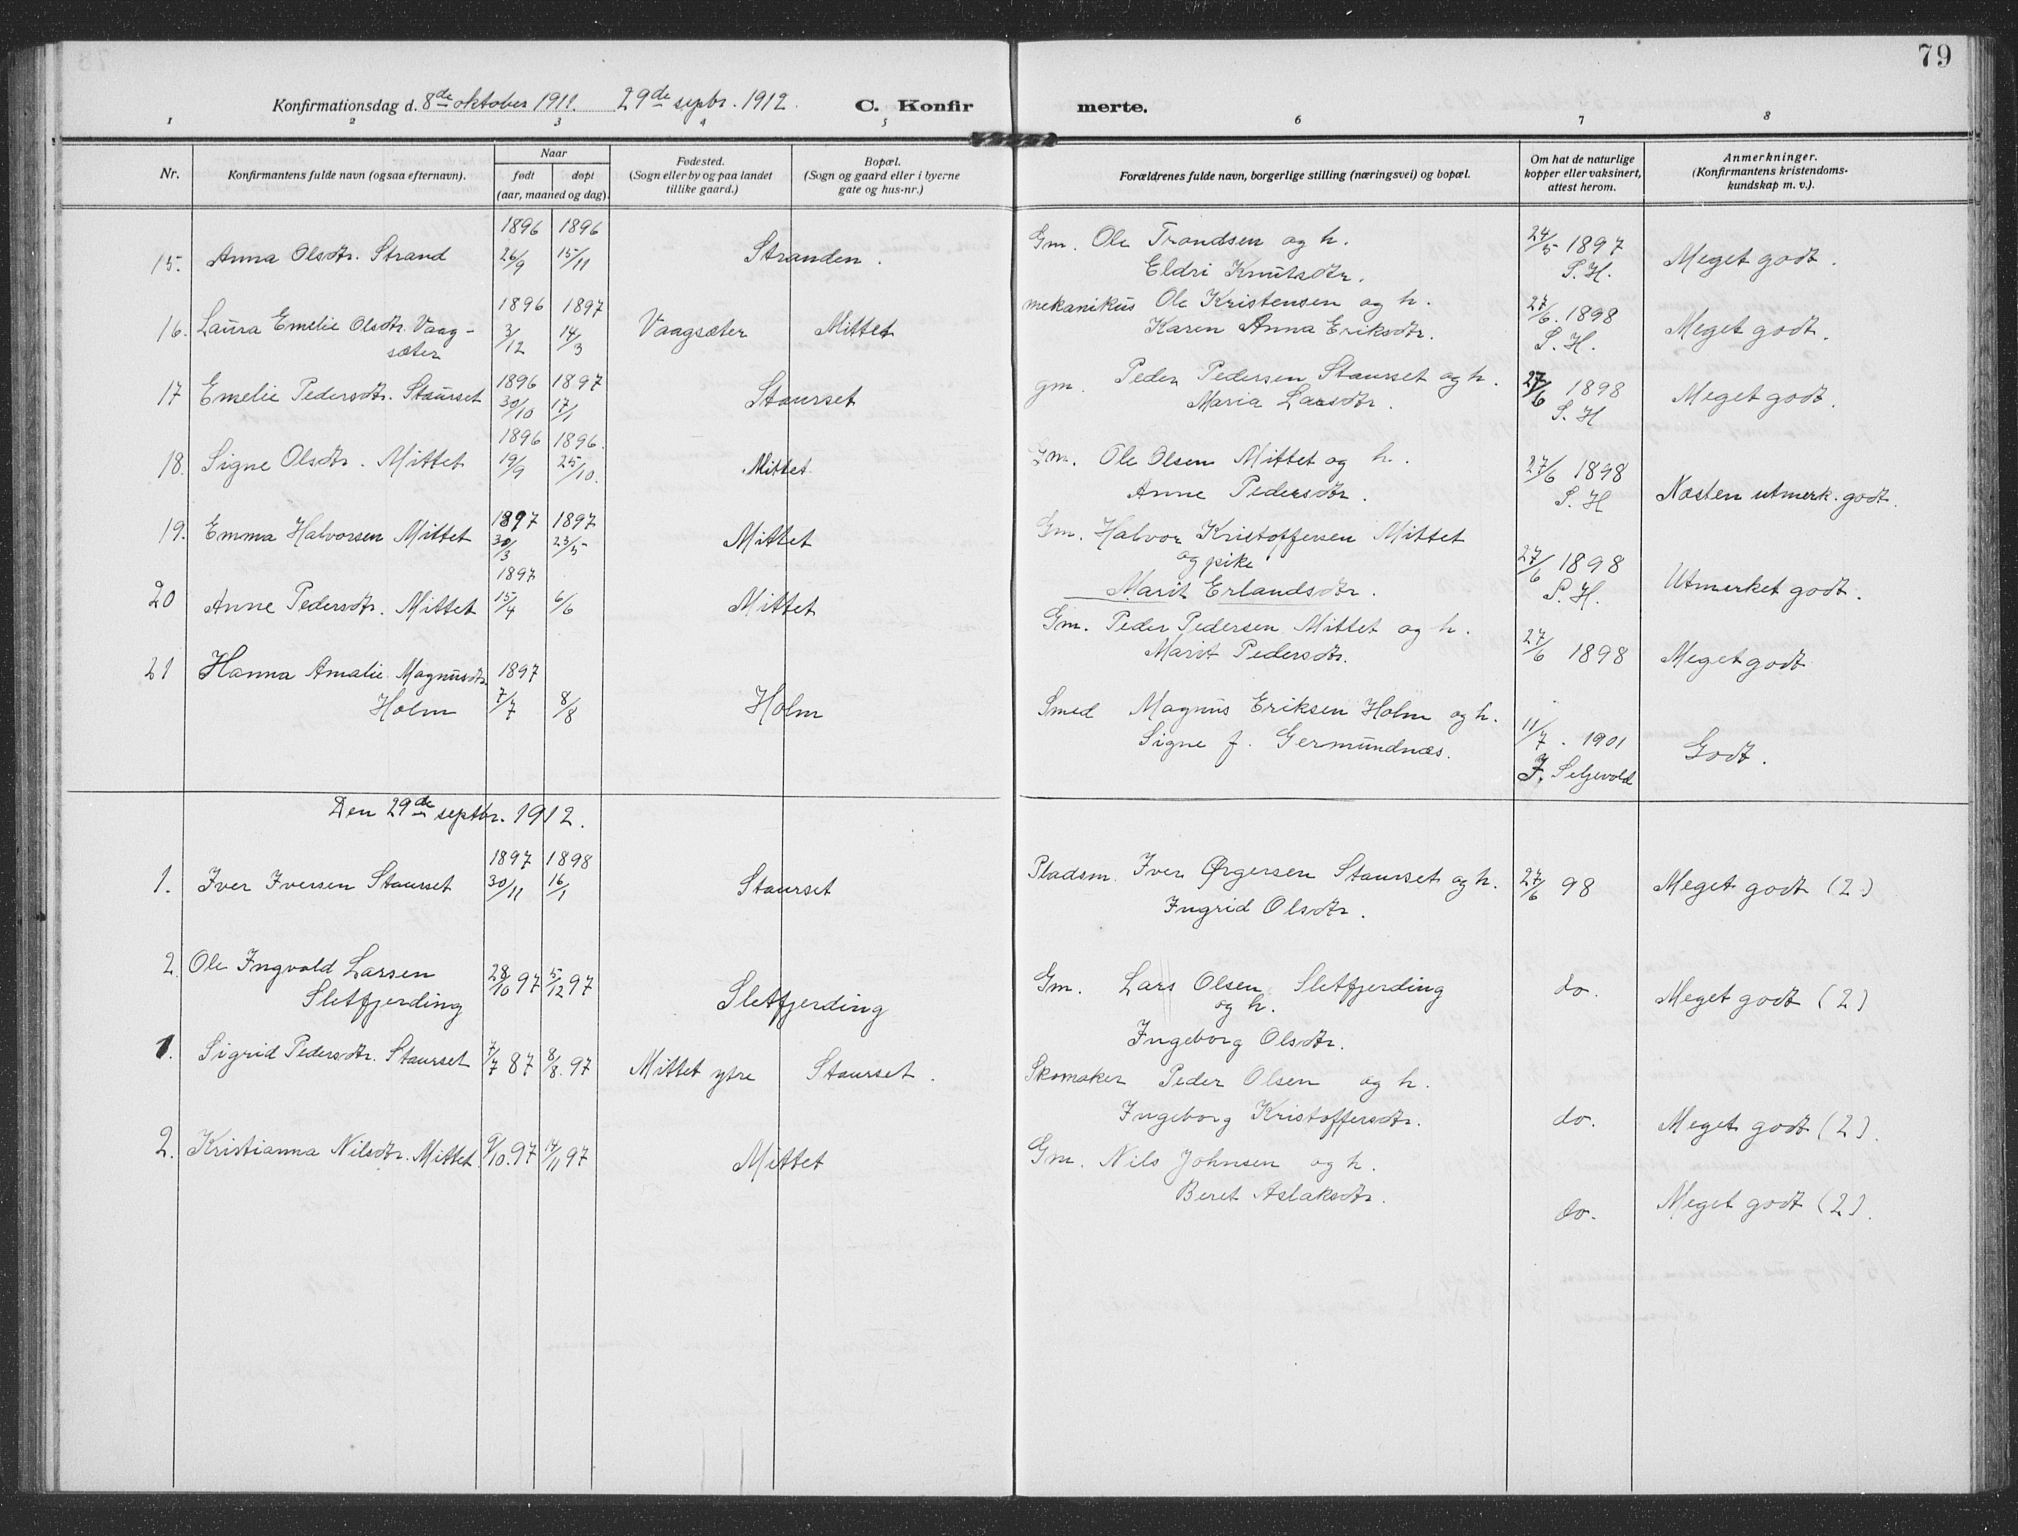 79
Konfirmationsdag d. 8de oktober 1911. 29de septbr. 1912. C. Konfirmerte.
1 2 3 4 5 6 7 8
Nr. Konfirmantens fulde navn (ogsaa efternavn). Naar født døpt (aar, maaned og dag). Fødested. (Sogn eller by og paa landet tillike gaard.) Bopæl. (Sogn og gaard eller i byerne gate og hus-nr.) Forældrenes fulde navn, borgerlige stilling (næringsvei) og bopæl. Om hat de naturlige kopper eller vaksinert, attest herom. Anmerkninger. (Konfirmantens kristendoms-kundskap m. v.)
1896 1896
15. Anna Olsdtr. Strand 26/9 15/11 Stranden. Gm. Ole Trondsen og h. 24/5 1897 Meget godt.
Eldri Knutsdtr. S. H.
1896 1897
16. Laura Emelie Olsdtr. Vaag- 3/12 14/3 Vaagsæter Mittet mekanikus Ole Kristensen og h. 27/6. 1898 Meget godt.
sæter Karen Anna Eriksdtr. S. H.
1896 1897
17 Emelie Pedersdtr. Staurset 30/10 17/1 Staurset gm. Peder Pedersen Staurset og h. 27/6 1898 Meget godt.
Maria Larsdtr. S. H
1896 1896.
18. Signe Olsdtr. Mittet 19/9 25/10. Mittet Gm. Ole Olsen Mittet og h. 27/6 1898 Næsten utmerk. godt.
Anne Pedersdtr. S. H
1897 1897
19. Emma Halvorsen Mittet 30/3 23/5 Mittet Gm. Halvor Kristoffersen Mittet 27/6 1898 Utmerket godt.
og pike
Marit Erlandsdtr. S. H.
1897
20 Anne Pedersdtr. Mittet 15/4 6/6 Mittet Gm. Peder Pedersen Mittet og h. 27/6 1898 Meget godt
Marit Pedersdtr.
21 Hanna Amalie Magnusdtr 1897
Holm 7/7 8/8 Holm Smed Magnus Eriksen Holm og h. 11/7. 1901 Godt.
Signe f. Germundnæs. J. Seljevold
Den 29de septbr. 1912.
1897 1898
1. Iver Iversen Staurset 30/11 16/1 Staurset Pladsm. Iver Ørgersen Staurset og h. 27/6 98 Meget godt (2)
Ingrid Olsdtr.
2 Ole Ingvald Larsen 28/10 97 5/12 97 Sletfjerding Gm. Lars Olsen Sletfjerding do. Meget godt (2)
Sletfjerding og h.
Ingeborg Olsdtr.
1. Sigrid Pedersdtr. Staurset 7/7 87 8/8. 97 Mittet ytre Staurset. Skomaker Peder Olsen og h.
Ingeborg Kristoffersdtr. do. Meget godt (2).
2. Kristianna Nilsdtr. Mittet 9/10. 97 14/11 97 Mittet Gm. Nils Johnsen og h.
Beret Aslaksdtr. do. Meget godt (2).